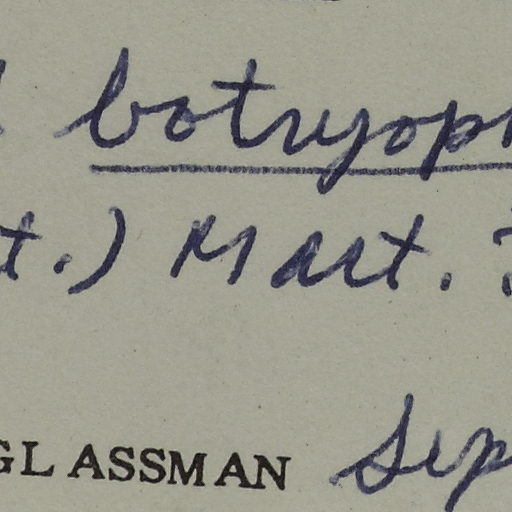 botryoph
t.) Mart. ?
GLASSMAN Sep